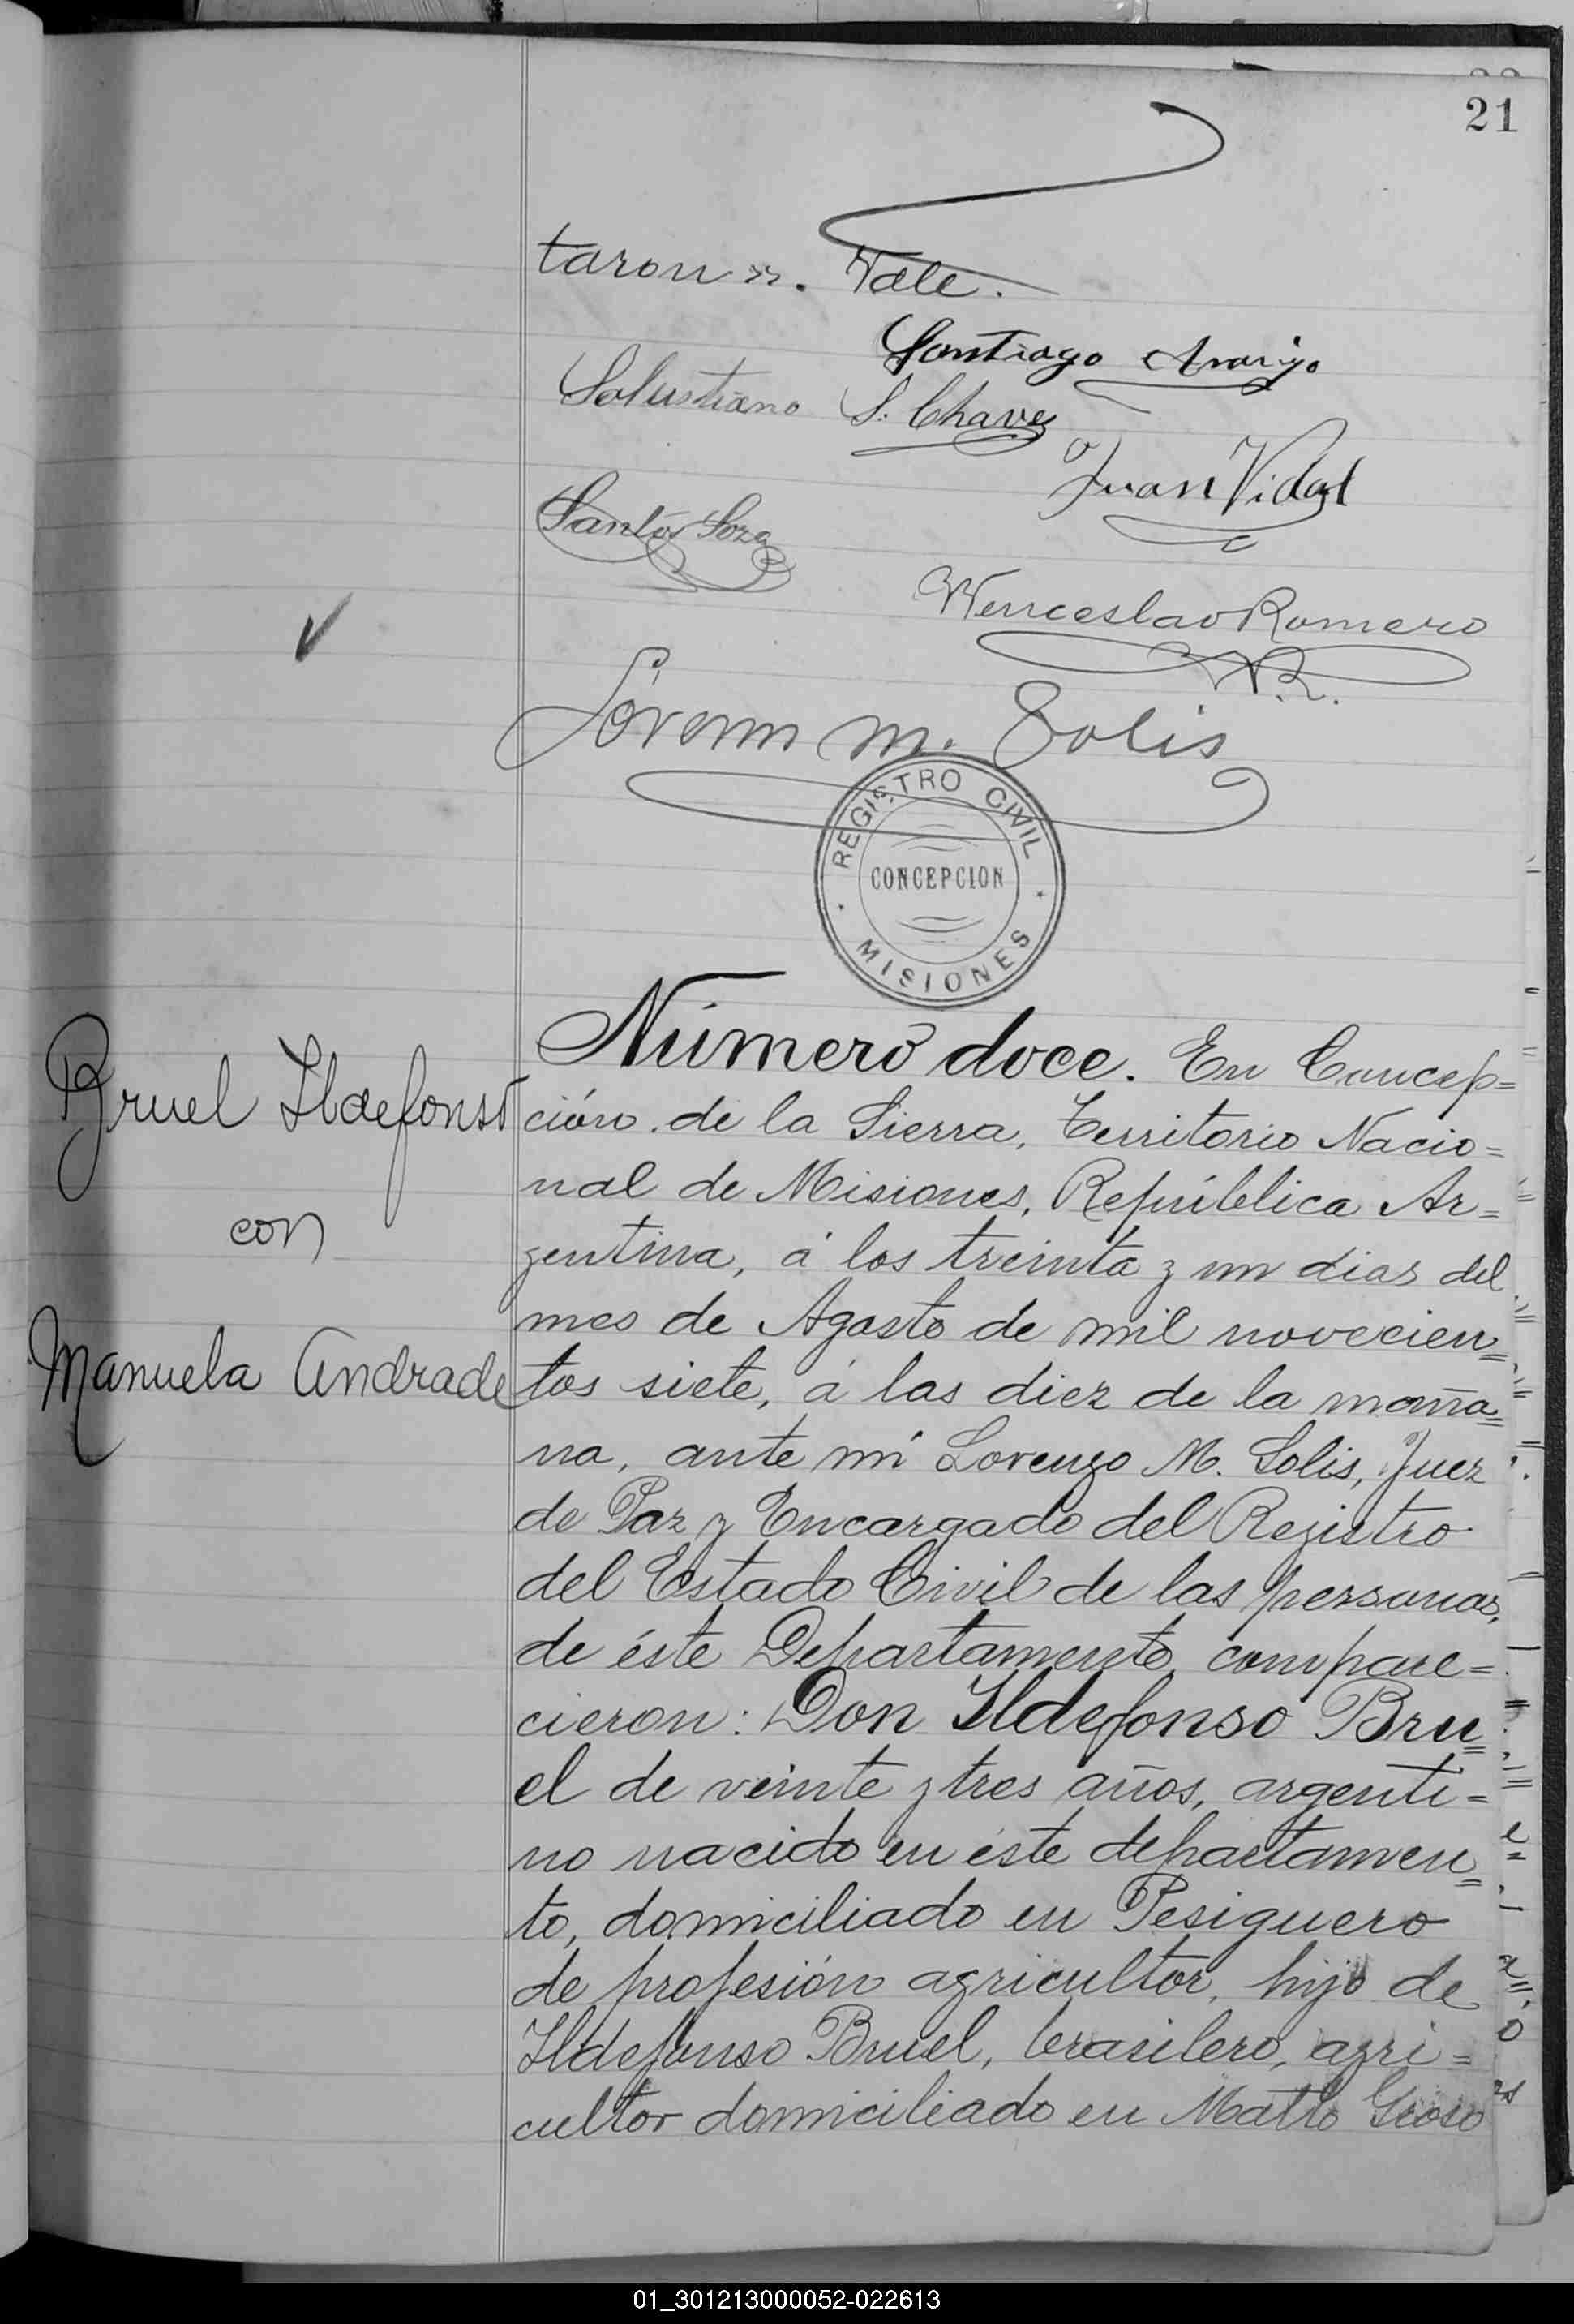 21
taron ». Vale.
Santiago Araujo
Solustiano S. Chaves
Juan Vidal
Santos Soza
Wenceslao Romero
W.R.
Lorenzo M. Solis
REGISTRO CIVIL
CONCEPCION
MISIONES
Número doce. En Concep=
ción de la Sierra, Territorio Nacio=
nal de Misiones, República Ar=
gentina, á los treinta y un dias del
mes de Agosto de mil novecien=
tos siete, á las diez de la maña=
na, ante mi Lorenzo M. Solis, Juez
de Paz y Encargado del Registro
del Estado Civil de las personas,
de éste Departamento, compare=
cieron: Don Ildefonso Bru=
el de veinte y tres años, argenti=
no nacido en éste departamen=
to, domiciliado en Pesiguero
de profesión agricultor, hijo de
Ildefonso Bruel, brasilero, agri=
cultor domiciliado en Matto Groso
Bruel Ildefonso
con
Manuela Andrade
01_301213000052-022613